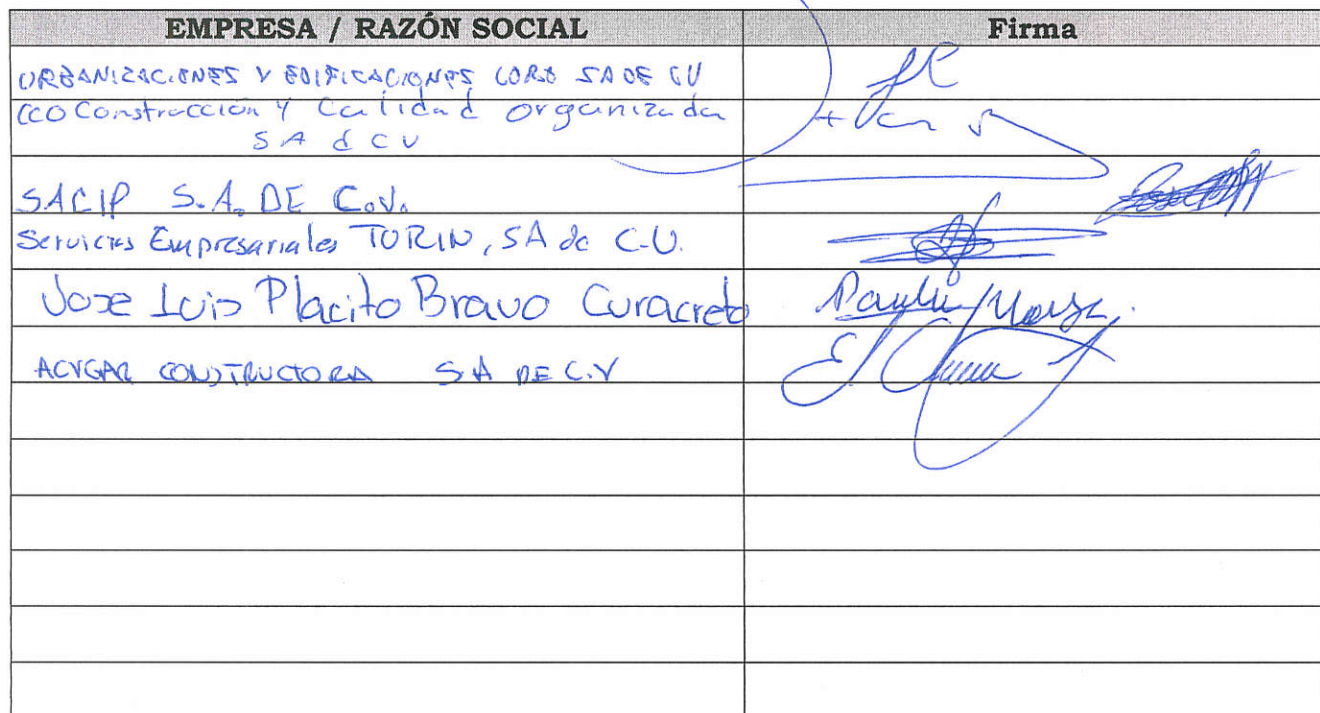 EMPRESA / RAZÓN SOCIAL Firma
URBANIZACIONES Y EDIFICACIONES CORO SA DE CV
CCO Construcción y Calidad Organizada
S A d C V
SACIP S.A. DE C.V.
Servicios Empresariales TORIN, SA de C.V.
Jose Luis Placito Bravo Curacreto
ACVGAR CONSTRUCTORA S A DE C.V